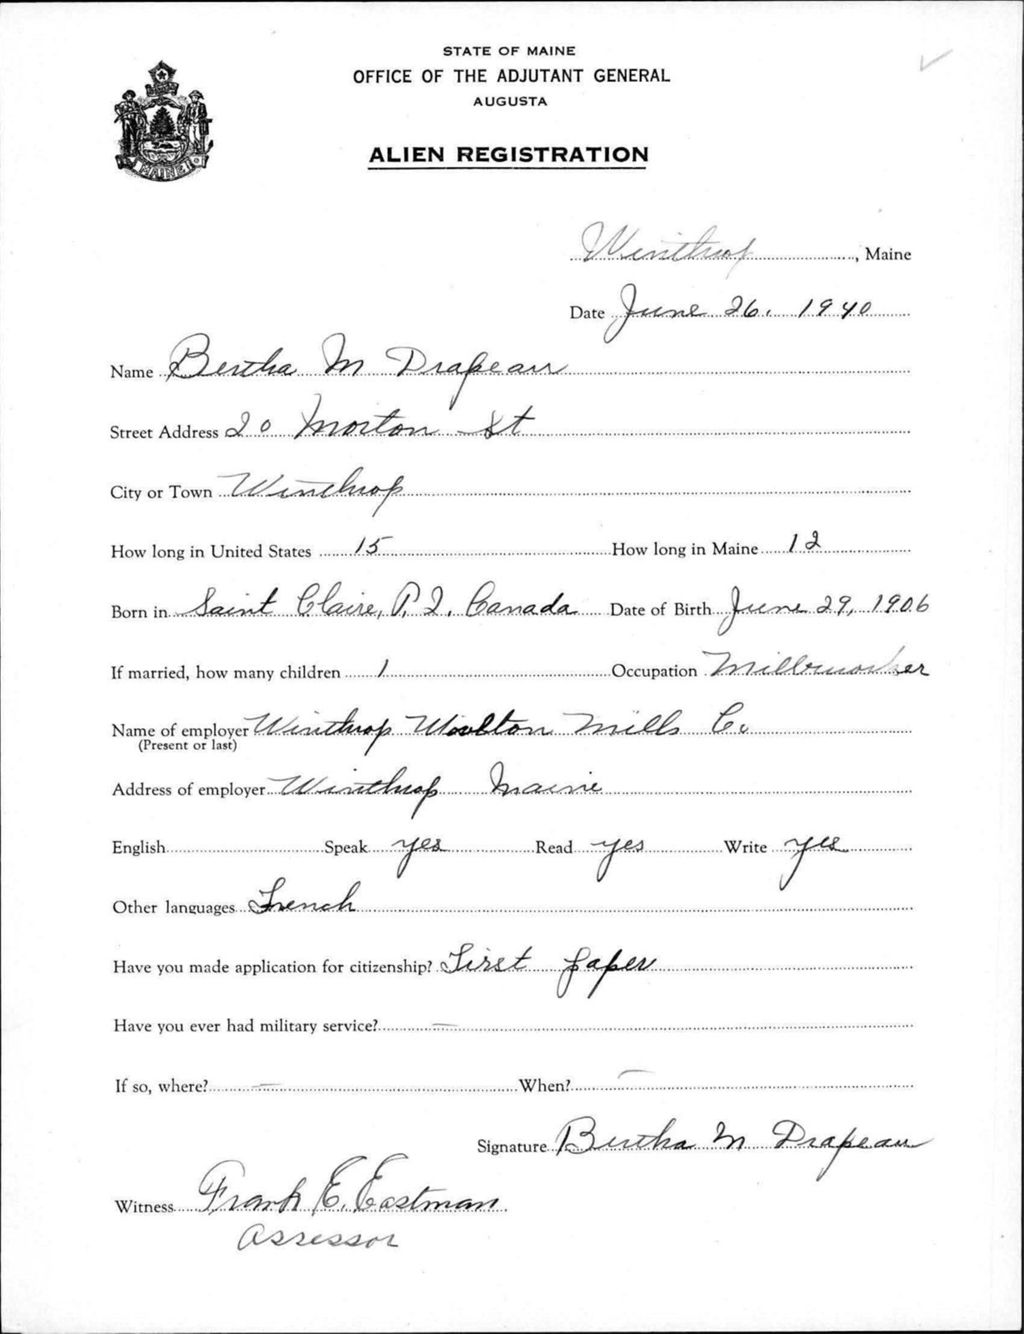 STATE OF MAINE
OFFICE OF THE ADJUTANT GENERAL
AUGUSTA
ALIEN REGISTRATION
MAINE
Winthrop, Maine
Date June 26, 1940
Name Bertha M Drapeau
Street Address 20 Morton St
City or Town Winthrop
How long in United States 15 How long in Maine 12
Born in Saint Claire, P.Q. Canada Date of Birth June 29, 1906
If married, how many children 1 Occupation Millworker
Name of employer Winthrop Woolton Mills Co
(Present or last)
Address of employer Winthrop Maine
English Speak yes Read yes Write yes
Other languages French
Have you made application for citizenship? First paper
Have you ever had military service? —
If so, where? — When? —
Signature Bertha M Drapeau
Witness Frank E. Eastman
Assessor